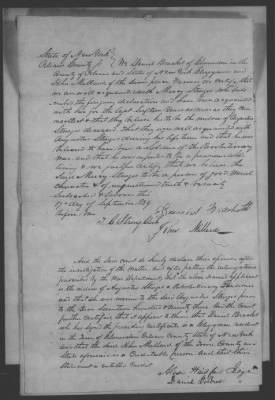 State of New York
Orleans County } We Daniel Brackett of Clarendon in the
County of Orleans and State of New York Clergyman and
John Millard of the same place Farmer do certify that
we are well acquainted with Mercy Sturges who sub-
scribed the foregoing declaration and have been acquainted
with her for the last fifteen years and that she was
and that they believe her to be the widow of Augustus
Sturges deceased that they were well acquainted with
Augustus Sturges during his lifetime and that he was
believed to have been a soldier of the Revolutionary
War and that he was reputed to be a pensioner while
living & we further certify that we believe the
said Mercy Sturges to be a person of good moral
character & of unquestioned truth & veracity
Subscribed & sworn this
17th day of September 1839
before me
Daniel Brackett
John Millard
And the said court do hereby declare their opinion after
the investigation of the matter and after putting the interrogatories
prescribed by the War Department that the above named applicant
is the widow of Augustus Sturges a Revolutionary Pensioner
and that she was married to the said Augustus Sturges prior
to the year Seventeen hundred & ninety three And the court
further certifies that it appears to them that Daniel Brackett
who has signed the preceding certificate is a Clergyman resident
in the Town of Clarendon Orleans County State of New York
and that the said John Millard of the Town County and
State aforesaid is a Creditable person and that their
Statement is entitled to credit